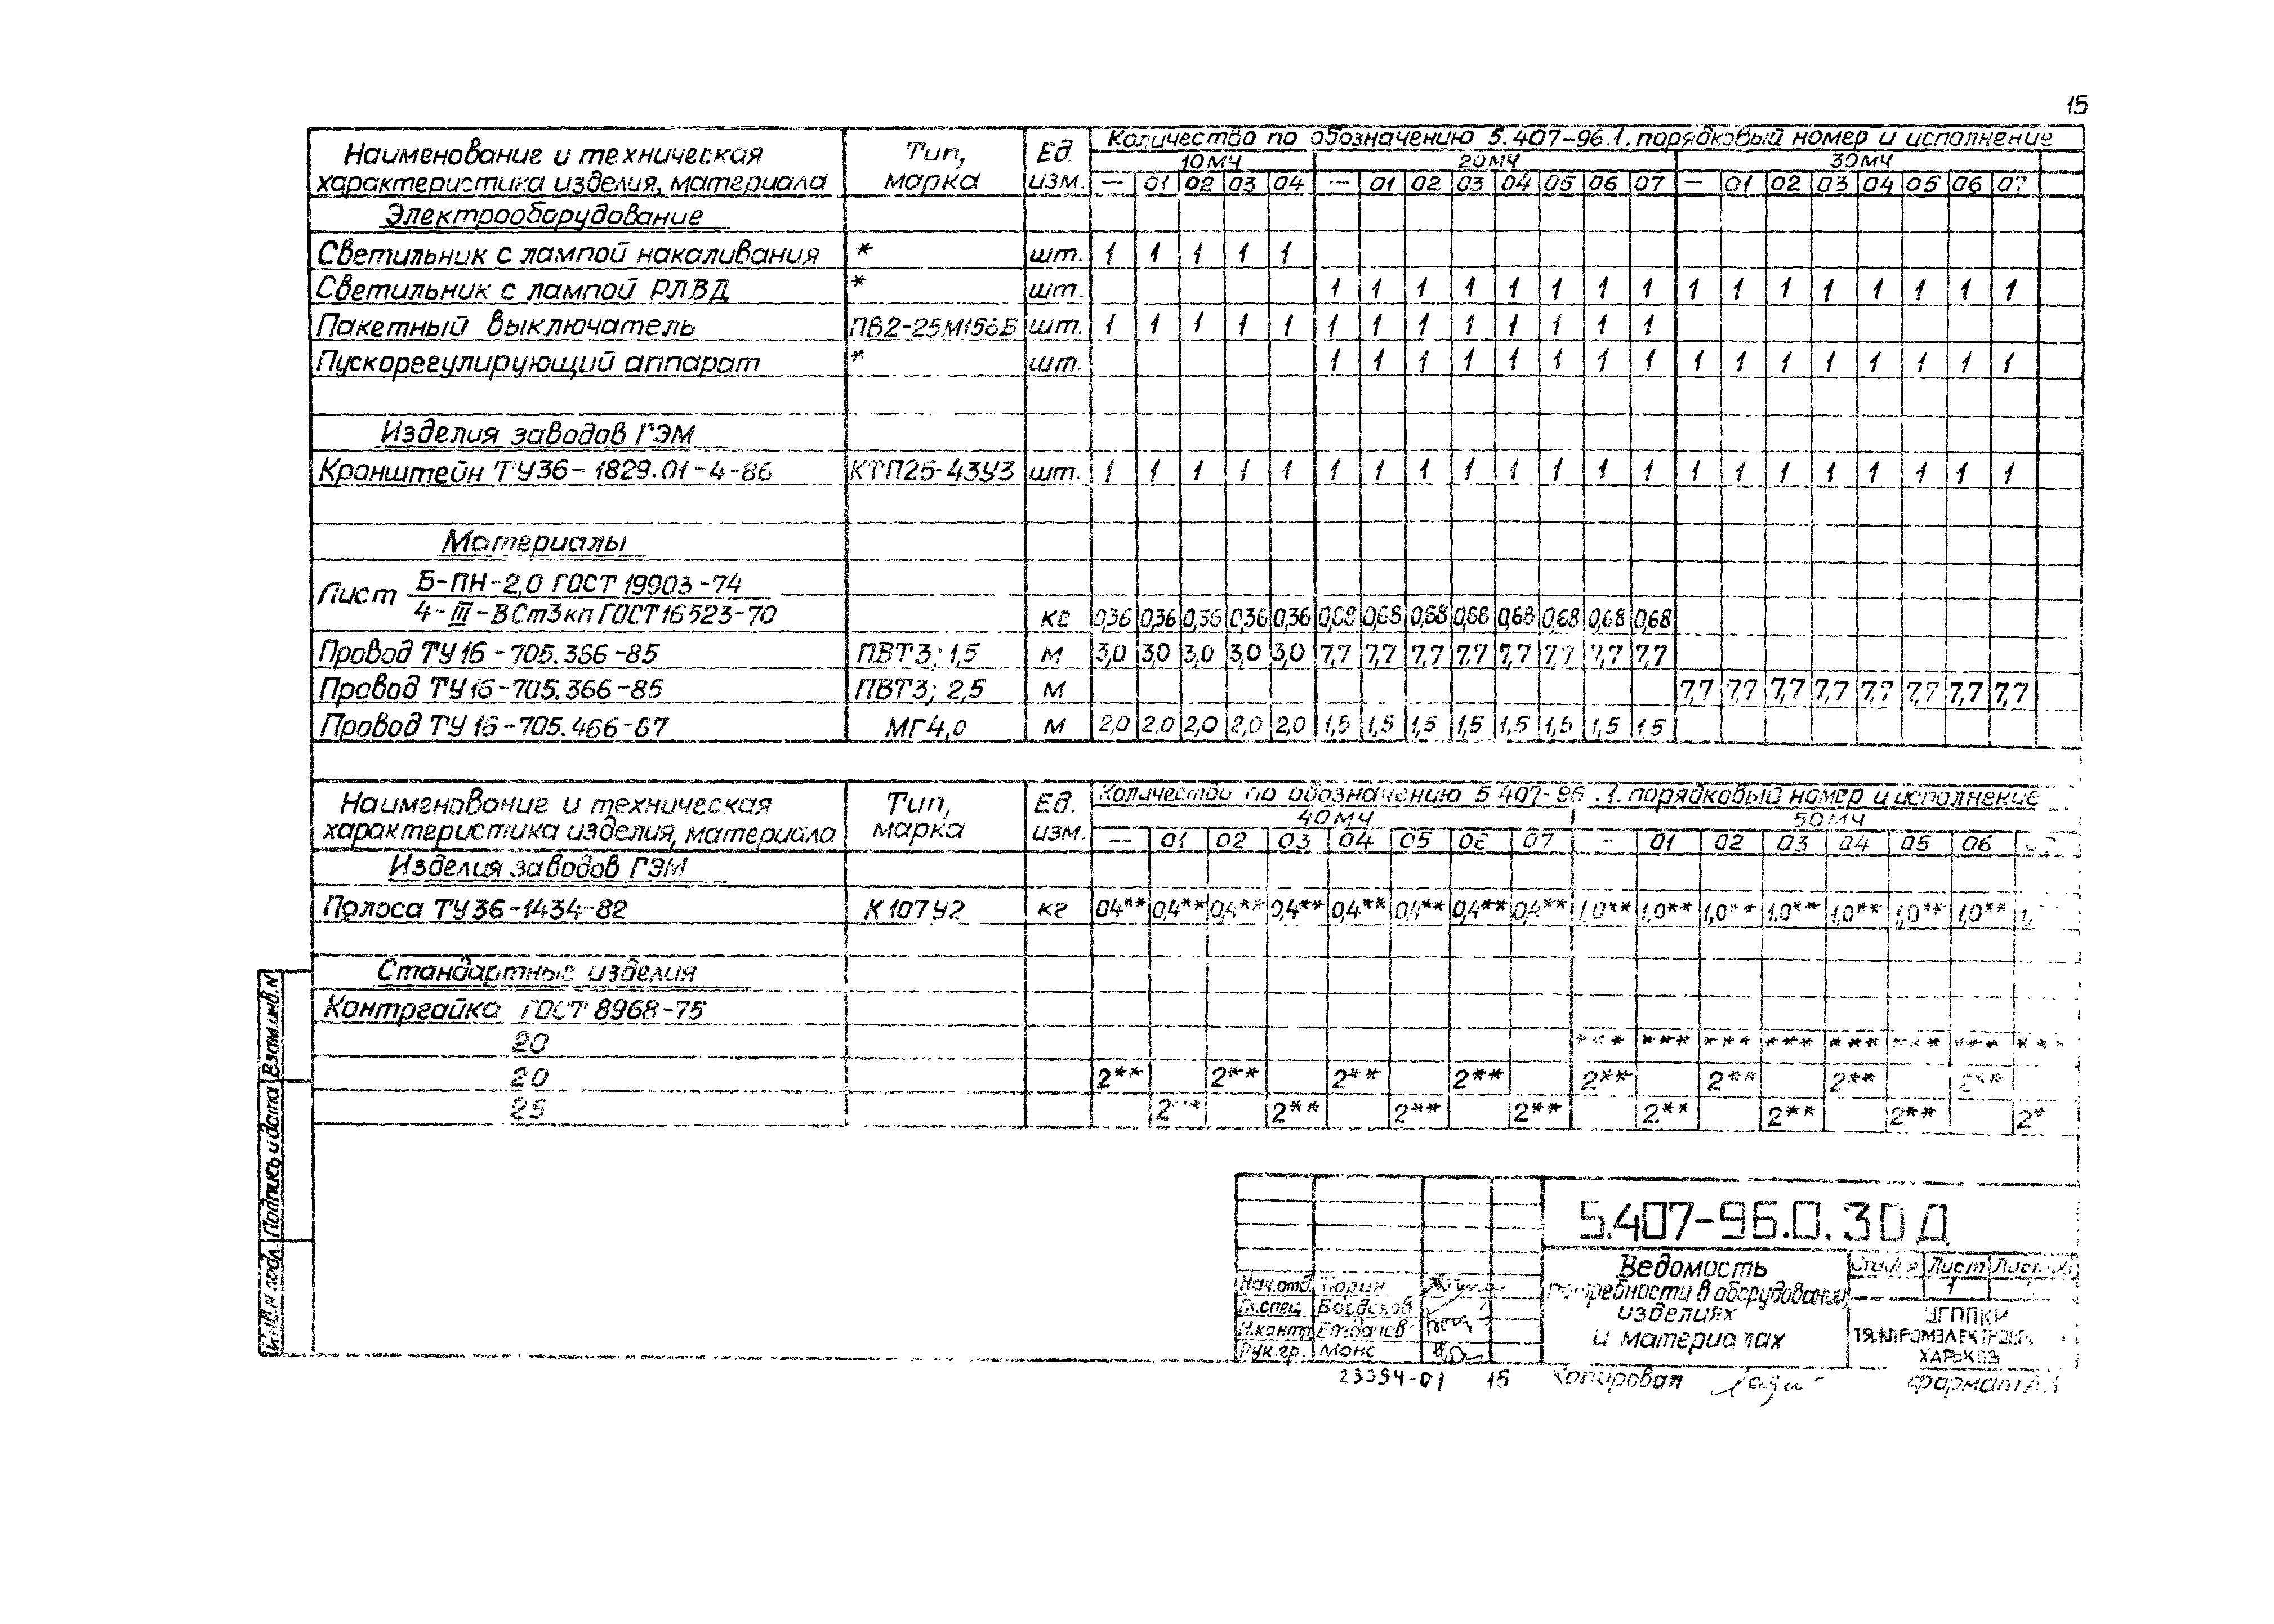 15
Наименование и техническая характеристика изделия, материала Тип, марка Ед. изм. Количество по обозначению 5.407-96.1. порядковый номер и исполнение
10МЧ 20МЧ 30МЧ
— 01 02 03 04 — 01 02 03 04 05 06 07 — 01 02 03 04 05 06 07
Электрооборудование
Светильник с лампой накаливания * шт. 1 1 1 1 1
Светильник с лампой РЛВД * шт. 1 1 1 1 1 1 1 1 1 1 1 1 1 1 1 1
Пакетный выключатель ПВ2-25М156Б шт. 1 1 1 1 1 1 1 1 1 1 1 1 1
Пускорегулирующий аппарат * шт. 1 1 1 1 1 1 1 1 1 1 1 1 1 1 1 1
Изделия заводов ГЭМ
Кронштейн ТУ36-1829.01-4-86 КТП25-43У3 шт. 1 1 1 1 1 1 1 1 1 1 1 1 1 1 1 1 1 1 1 1 1
Материалы
Лист Б-ПН-2,0 ГОСТ 19903-74
4-III-ВСт3кп ГОСТ16523-70 кг 0,36 0,36 0,36 0,36 0,36 0,68 0,68 0,68 0,68 0,68 0,68 0,68 0,68
Провод ТУ16-705.366-85 ПВТ3; 1,5 м 3,0 3,0 3,0 3,0 3,0 7,7 7,7 7,7 7,7 7,7 7,7 7,7 7,7
Провод ТУ16-705.366-85 ПВТ3; 2,5 м 7,7 7,7 7,7 7,7 7,7 7,7 7,7 7,7
Провод ТУ 16-705.466-87 МГ4,0 м 2,0 2,0 2,0 2,0 2,0 1,5 1,5 1,5 1,5 1,5 1,5 1,5 1,5
Наименование и техническая характеристика изделия, материала Тип, марка Ед. изм. Количество по обозначению 5.407-96.1. порядковый номер и исполнение
40МЧ 50МЧ
— 01 02 03 04 05 06 07 — 01 02 03 04 05 06
Изделия заводов ГЭМ
Полоса ТУ36-1434-82 К107У2 кг 0,4** 0,4** 0,4** 0,4** 0,4** 0,4** 0,4** 0,4** 1,0** 1,0** 1,0** 1,0** 1,0** 1,0** 1,0** 1,
Стандартные изделия
Контргайка ГОСТ 8968-75
20 *** *** *** *** *** *** *** ***
20 2** 2** 2** 2** 2** 2** 2** 2**
25 2** 2** 2** 2** 2** 2** 2** 2*
Инв.N подл. Подпись и дата Взам.инв.N
5.407-96.0.30 Д
Нач.отд. Тюрин
Гл.спец. Богдачов
Н.контр. Богдачов
Рук.гр. Монс
Ведомость
потребности в оборудовании,
изделиях
и материалах
Стадия Лист Лист
1
УГППКИ
ТЯЖПРОМЭЛЕКТРОПР
ХАРЬКОВ
23394-01 15 Копировал Формат А3